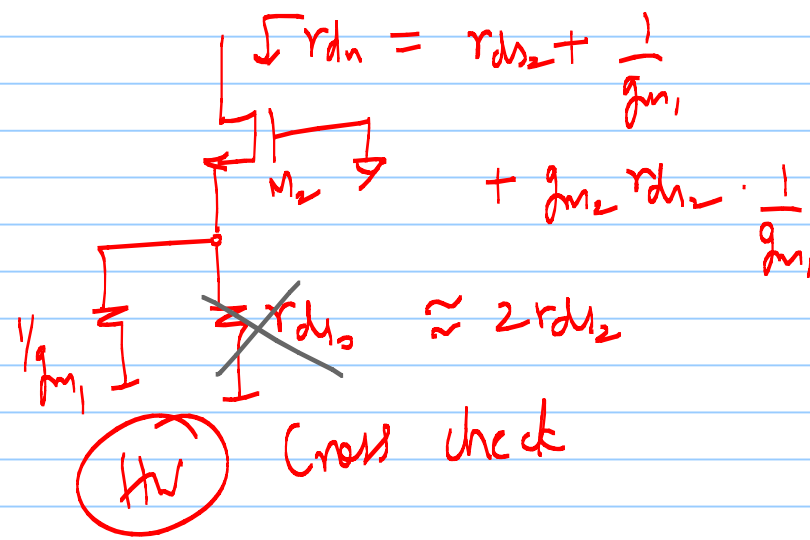 r_dn = r_ds2 + 1/g_m1
+ g_m2 r_ds2 · 1/g_m1
M_2
1/g_m1
r_ds0 ≈ 2 r_ds2
HW
Cross check